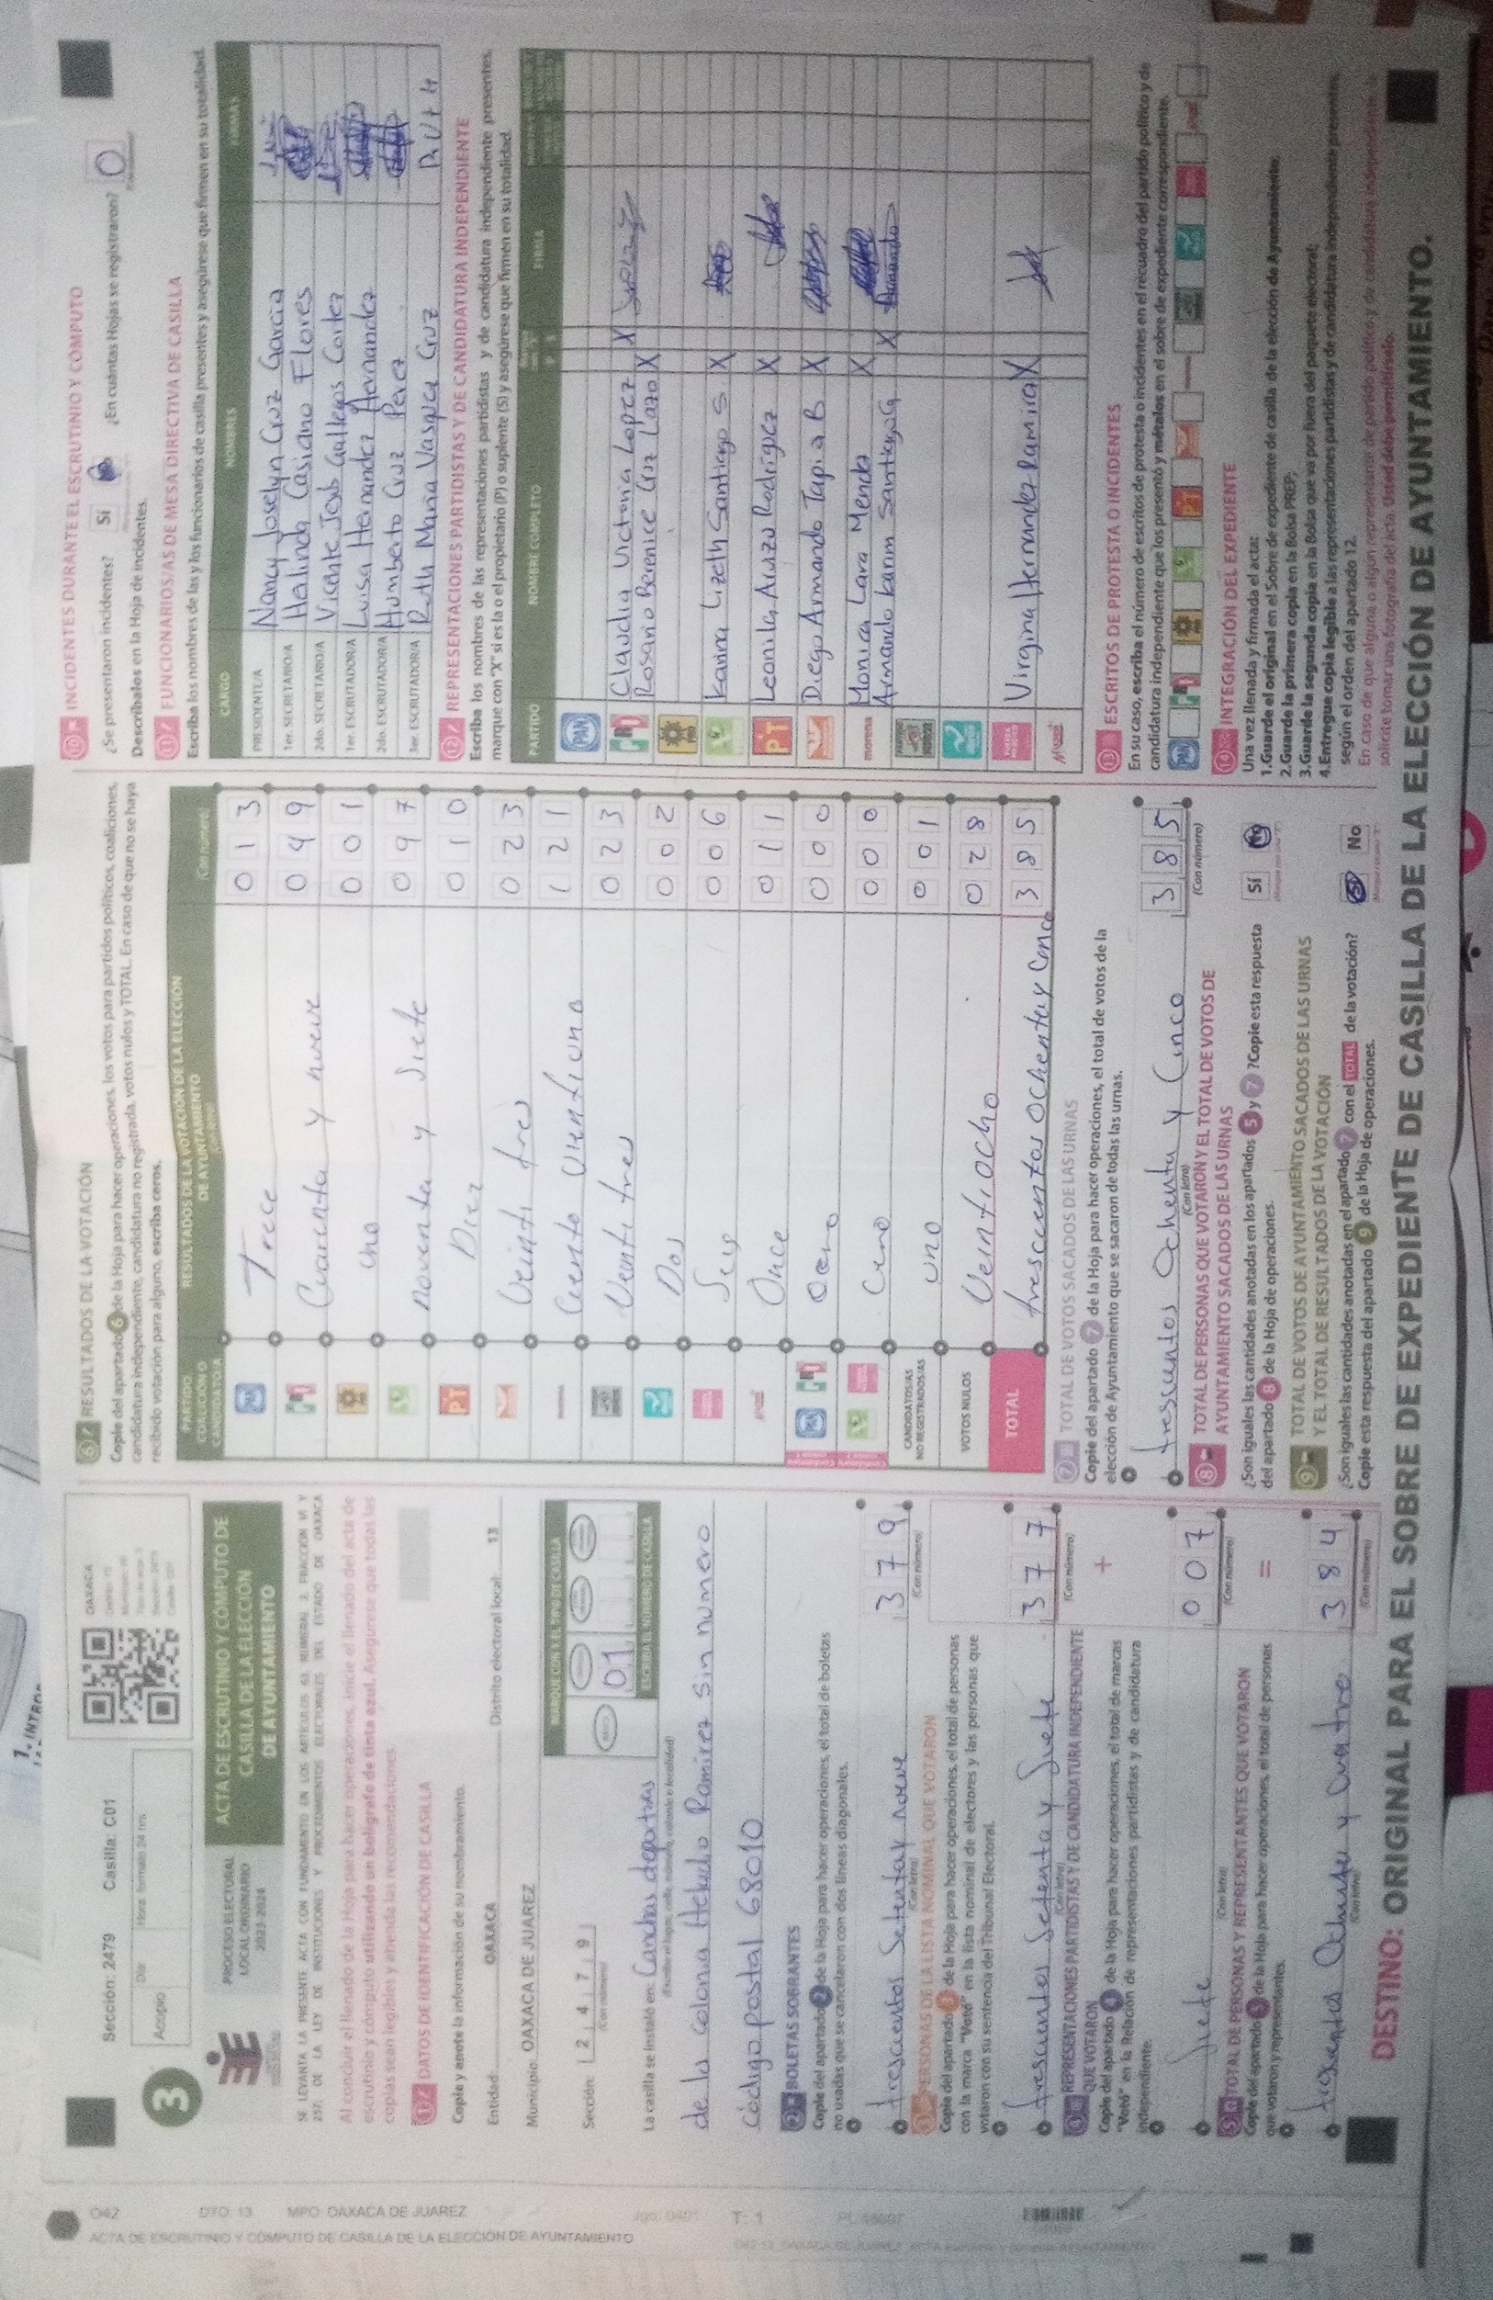 Sección: 2479 Casilla: C01
OAXACA
3
Acopio
Día
Hora: formato 24 hrs
PROCESO ELECTORAL
LOCAL ORDINARIO
2023-2024
ACTA DE ESCRUTINIO Y CÓMPUTO DE
CASILLA DE LA ELECCIÓN
DE AYUNTAMIENTO
SE LEVANTA LA PRESENTE ACTA CON FUNDAMENTO EN LOS ARTÍCULOS
237, DE LA LEY DE INSTITUCIONES Y PROCEDIMIENTOS ELECTORALES DEL ESTADO DE OAXACA
Al concluir el llenado de la Hoja para hacer operaciones, inicie el llenado del acta de
escrutinio y cómputo utilizando un bolígrafo de tinta azul. Asegúrese que todas las
copias sean legibles y atienda las recomendaciones.
1 DATOS DE IDENTIFICACIÓN DE CASILLA
Copie y anote la información de su nombramiento.
Entidad: OAXACA Distrito electoral local: 13
Municipio: OAXACA DE JUAREZ
MARQUE CON X EL TIPO DE CASILLA
Sección: 2 4 7 9
(Con número)
01
ESCRIBA EL NÚMERO DE CASILLA
La casilla se instaló en: Canchas deportivas
de la colonia Heladio Ramirez sin numero
código postal 68010
2 BOLETAS SOBRANTES
Copie del apartado 2 de la Hoja para hacer operaciones, el total de boletas
no usadas que se cancelaron con dos líneas diagonales.
trescientos Setentay nueve 379
(Con letra) (Con número)
3 PERSONAS DE LA LISTA NOMINAL QUE VOTARON
Copie del apartado 3 de la Hoja para hacer operaciones, el total de personas
con la marca "Votó" en la lista nominal de electores y las personas que
votaron con su sentencia del Tribunal Electoral.
trescientos Setenta y Siete 377
(Con letra) (Con número)
4 REPRESENTACIONES PARTIDISTAS Y DE CANDIDATURA INDEPENDIENTE
QUE VOTARON +
Copie del apartado 4 de la Hoja para hacer operaciones, el total de marcas
"Votó" en la Relación de representaciones partidistas y de candidatura
independiente.
Siete 007
(Con letra) (Con número)
5 TOTAL DE PERSONAS Y REPRESENTANTES QUE VOTARON =
Copie del apartado 5 de la Hoja para hacer operaciones, el total de personas
que votaron y representantes.
trescientos Ochenta y Cuatro 384
(Con letra) (Con número)
6 RESULTADOS DE LA VOTACIÓN
Copie del apartado 6 de la Hoja para hacer operaciones, los votos para partidos políticos, coaliciones,
candidatura independiente, candidatura no registrada, votos nulos y TOTAL. En caso de que no se haya
recibido votación para alguno, escriba ceros.
PARTIDO
COALICIÓN O
CANDIDATO/A
RESULTADOS DE LA VOTACIÓN DE LA ELECCIÓN
DE AYUNTAMIENTO
(Con número)
PAN Trece 013
PRI Cuarenta y nueve 049
uno 001
noventa y Siete 097
PT Diez 010
Veinti tres 023
Ciento Veintiuno 121
Venti tres 023
Dos 002
Seis 006
Once 011
PAN PRI Cero 000
Cero 000
CANDIDATOS/AS
NO REGISTRADOS/AS uno 001
VOTOS NULOS Veintiocho 028
TOTAL trescientos ochentay Cinco 385
7 TOTAL DE VOTOS SACADOS DE LAS URNAS
Copie del apartado 7 de la Hoja para hacer operaciones, el total de votos de la
elección de Ayuntamiento que se sacaron de todas las urnas.
trescientos Ochenta y Cinco 385
(Con letra) (Con número)
8 TOTAL DE PERSONAS QUE VOTARON Y EL TOTAL DE VOTOS DE
AYUNTAMIENTO SACADOS DE LAS URNAS
¿Son iguales las cantidades anotadas en los apartados 5 y 7 ?Copie esta respuesta
del apartado 8 de la Hoja de operaciones.
Sí No
9 TOTAL DE VOTOS DE AYUNTAMIENTO SACADOS DE LAS URNAS
Y EL TOTAL DE RESULTADOS DE LA VOTACIÓN
¿Son iguales las cantidades anotadas en el apartado 7 con el TOTAL de la votación?
Copie esta respuesta del apartado 9 de la Hoja de operaciones.
Sí No
10 INCIDENTES DURANTE EL ESCRUTINIO Y CÓMPUTO
¿Se presentaron incidentes? Sí ¿En cuántas Hojas se registraron? 0
Descríbalos en la Hoja de incidentes.
11 FUNCIONARIOS/AS DE MESA DIRECTIVA DE CASILLA
Escriba los nombres de las y los funcionarios de casilla presentes y asegúrese que firmen en su totalidad.
CARGO NOMBRES FIRMAS
PRESIDENTE/A Nancy Joselyn Cruz Garcia
1er. SECRETARIO/A Herlinda Casiano Flores
2do. SECRETARIO/A Vicente Jesús Gallegos Cortez
1er. ESCRUTADOR/A Luisa Hernandez Hernandez
2do. ESCRUTADOR/A Humberto Cruz Perez
3er. ESCRUTADOR/A Ruth Maria Vasquez Cruz Ruth
12 REPRESENTACIONES PARTIDISTAS Y DE CANDIDATURA INDEPENDIENTE
Escriba los nombres de las representaciones partidistas y de candidatura independiente presentes,
marque con "X" si es la o el propietario (P) o suplente (S) y asegúrese que firmen en su totalidad.
PARTIDO NOMBRE COMPLETO FIRMA
PAN
PRI Claudia Victoria Lopez X
Rosario Berenice Cruz Lazo X
Karina Lizeth Santiago S X
PT Leonila Arizo Rodriguez X
Diego Armando Tapia B X
morena Monica Lara Mendez X
Armando Karim Santiago G X Armando
Virgina Hernandez Ramirez X
13 ESCRITOS DE PROTESTA O INCIDENTES
En su caso, escriba el número de escritos de protesta o incidentes en el recuadro del partido político y de
candidatura independiente que los presentó y métalos en el sobre de expediente correspondiente.
14 INTEGRACIÓN DEL EXPEDIENTE
Una vez llenada y firmada el acta:
1.Guarde el original en el Sobre de expediente de casilla de la elección de Ayuntamiento;
2.Guarde la primera copia en la Bolsa PREP;
3.Guarde la segunda copia en la Bolsa que va por fuera del paquete electoral;
4.Entregue copia legible a las representaciones partidistas y de candidatura independiente presentes,
según el orden del apartado 12.
En caso de que alguna o algún representante de partido político y de candidatura independiente
solicite tomar una fotografía del acta. Usted debe permitírselo.
DESTINO: ORIGINAL PARA EL SOBRE DE EXPEDIENTE DE CASILLA DE LA ELECCIÓN DE AYUNTAMIENTO.
042 DTO: 13 MPO: OAXACA DE JUAREZ T: 1
ACTA DE ESCRUTINIO Y CÓMPUTO DE CASILLA DE LA ELECCIÓN DE AYUNTAMIENTO